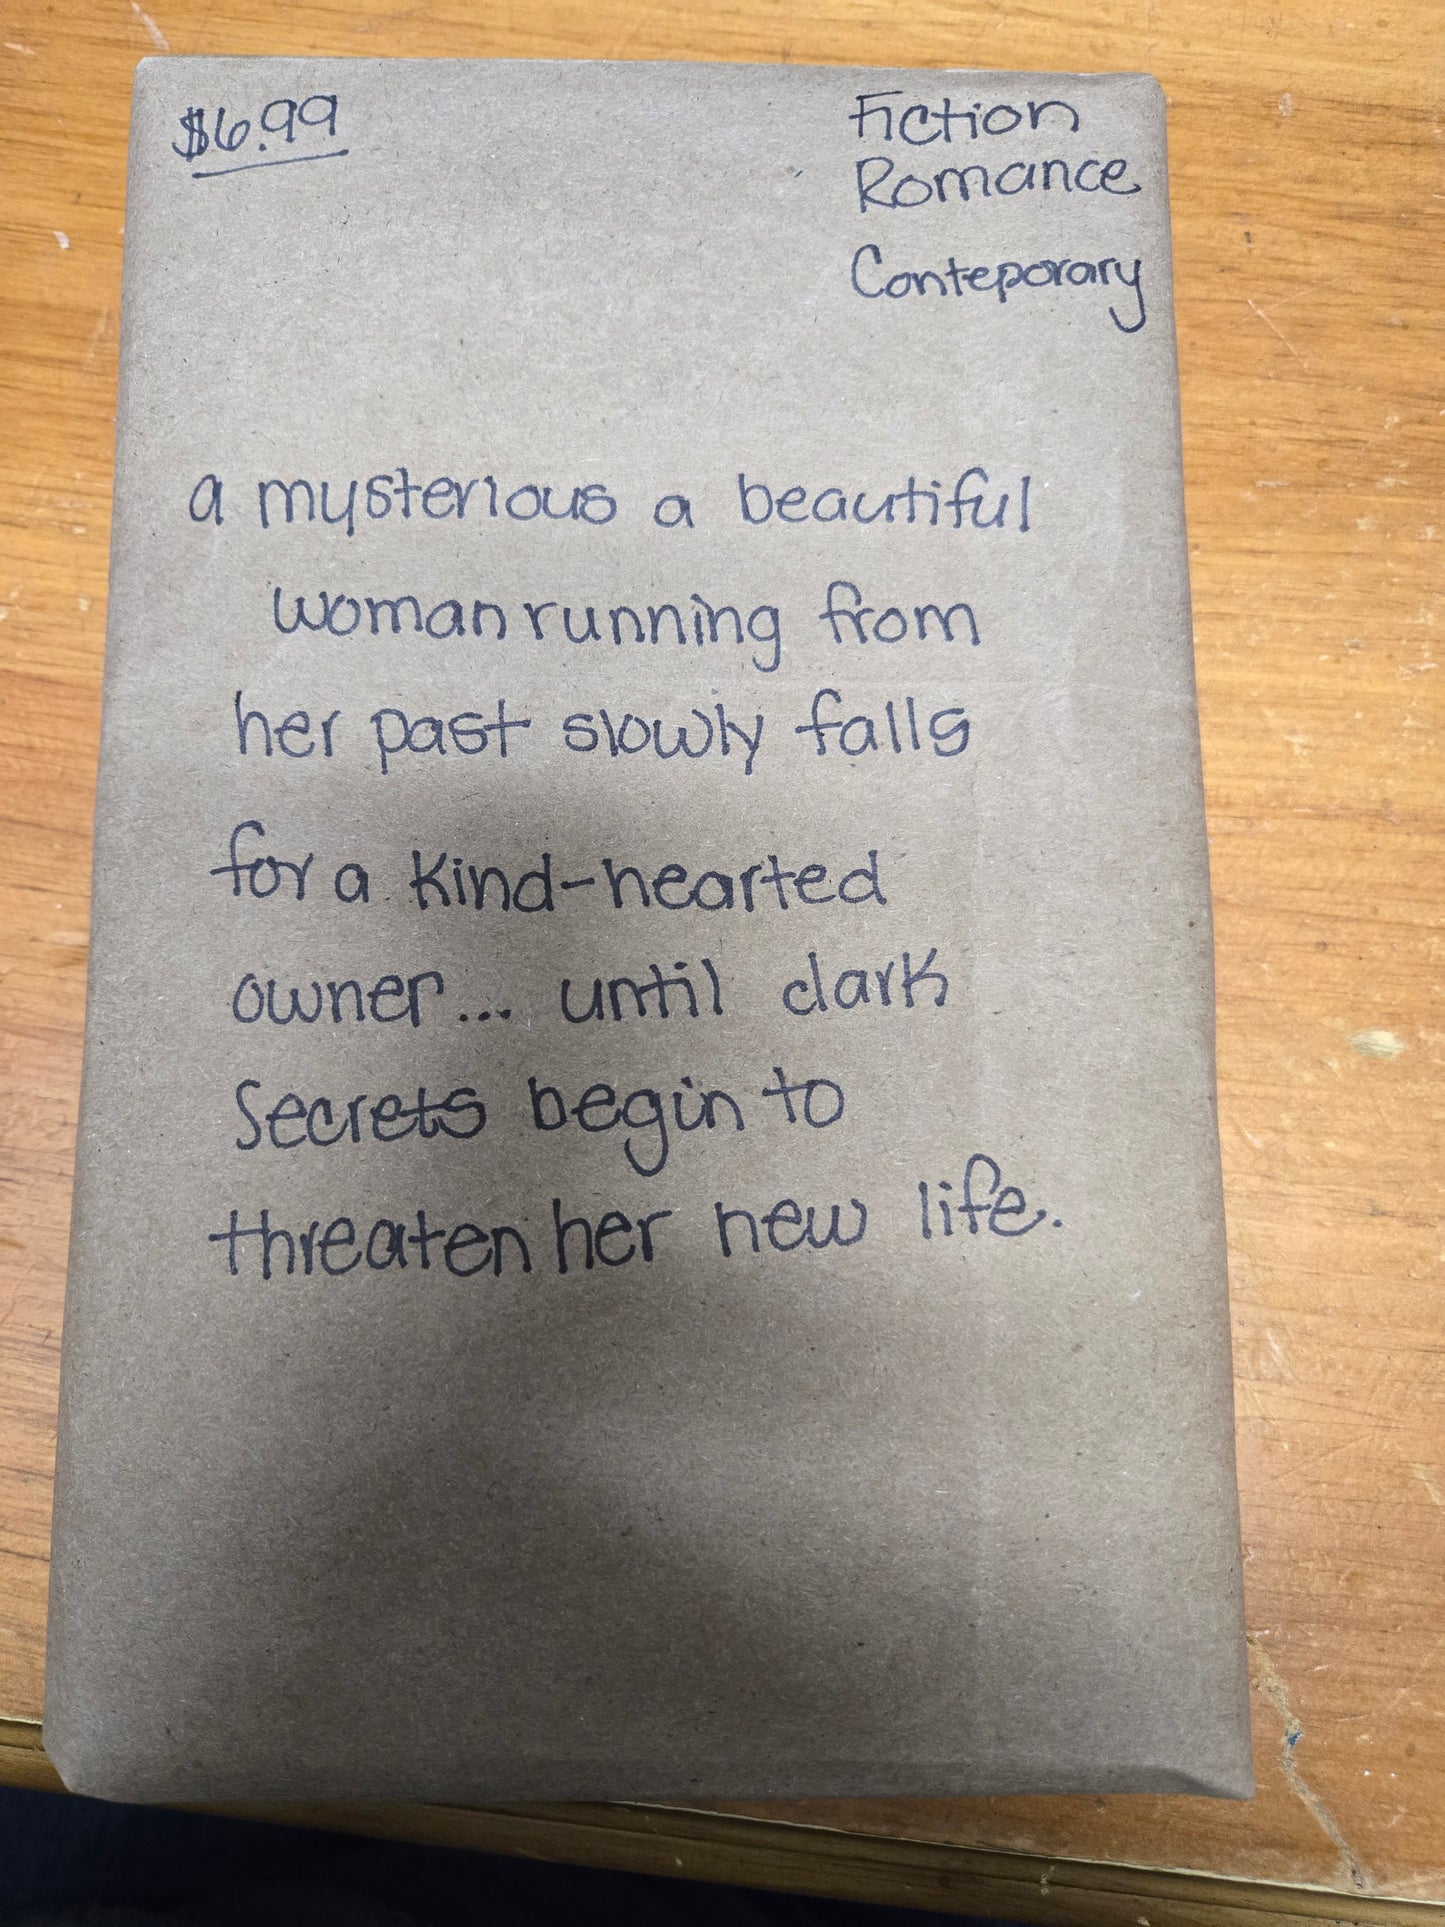 $6.99
Fiction
Romance
Conteporary
a mysterious a beautiful
woman running from
her past slowly falls
for a kind-hearted
owner... until dark
Secrets begin to
threaten her new life.